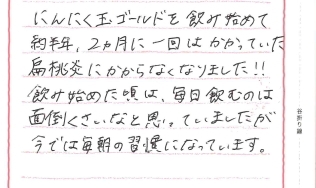 にんにく玉ゴールドを飲み始めて
約半年、2ヵ月に一回はかかっていた
扁桃炎にかからなくなりました!!
飲み始めた頃は、毎日飲むのは
面倒くさいなと思っていましたが
今では毎朝の習慣になっています。
谷折り線